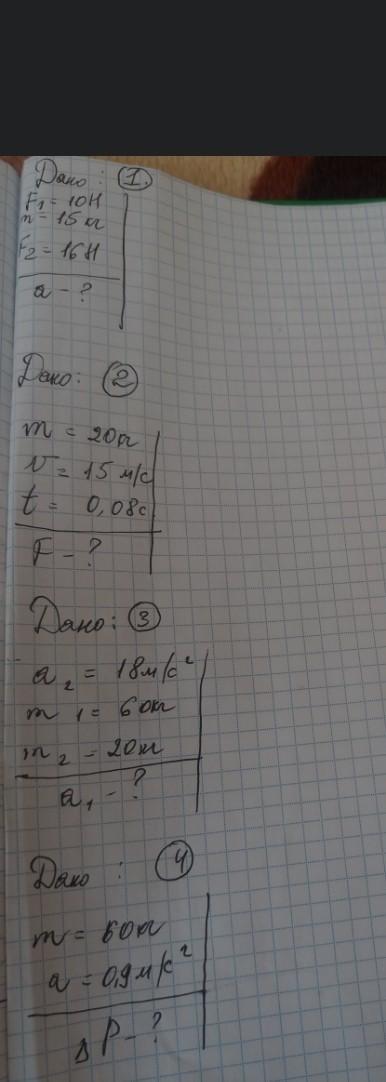 Дано: 1.
F₁ = 10Н
m = 15 кг
F₂ = 16Н
a - ?
Дано: 2
m = 20кг
v = 15 м/с
t = 0,08с
F - ?
Дано: 3
a₂ = 18м/с²
m₁ = 60кг
m₂ = 20кг
a₁ - ?
Дано : 4
m = 60кг
a = 0,9м/с²
ΔP - ?